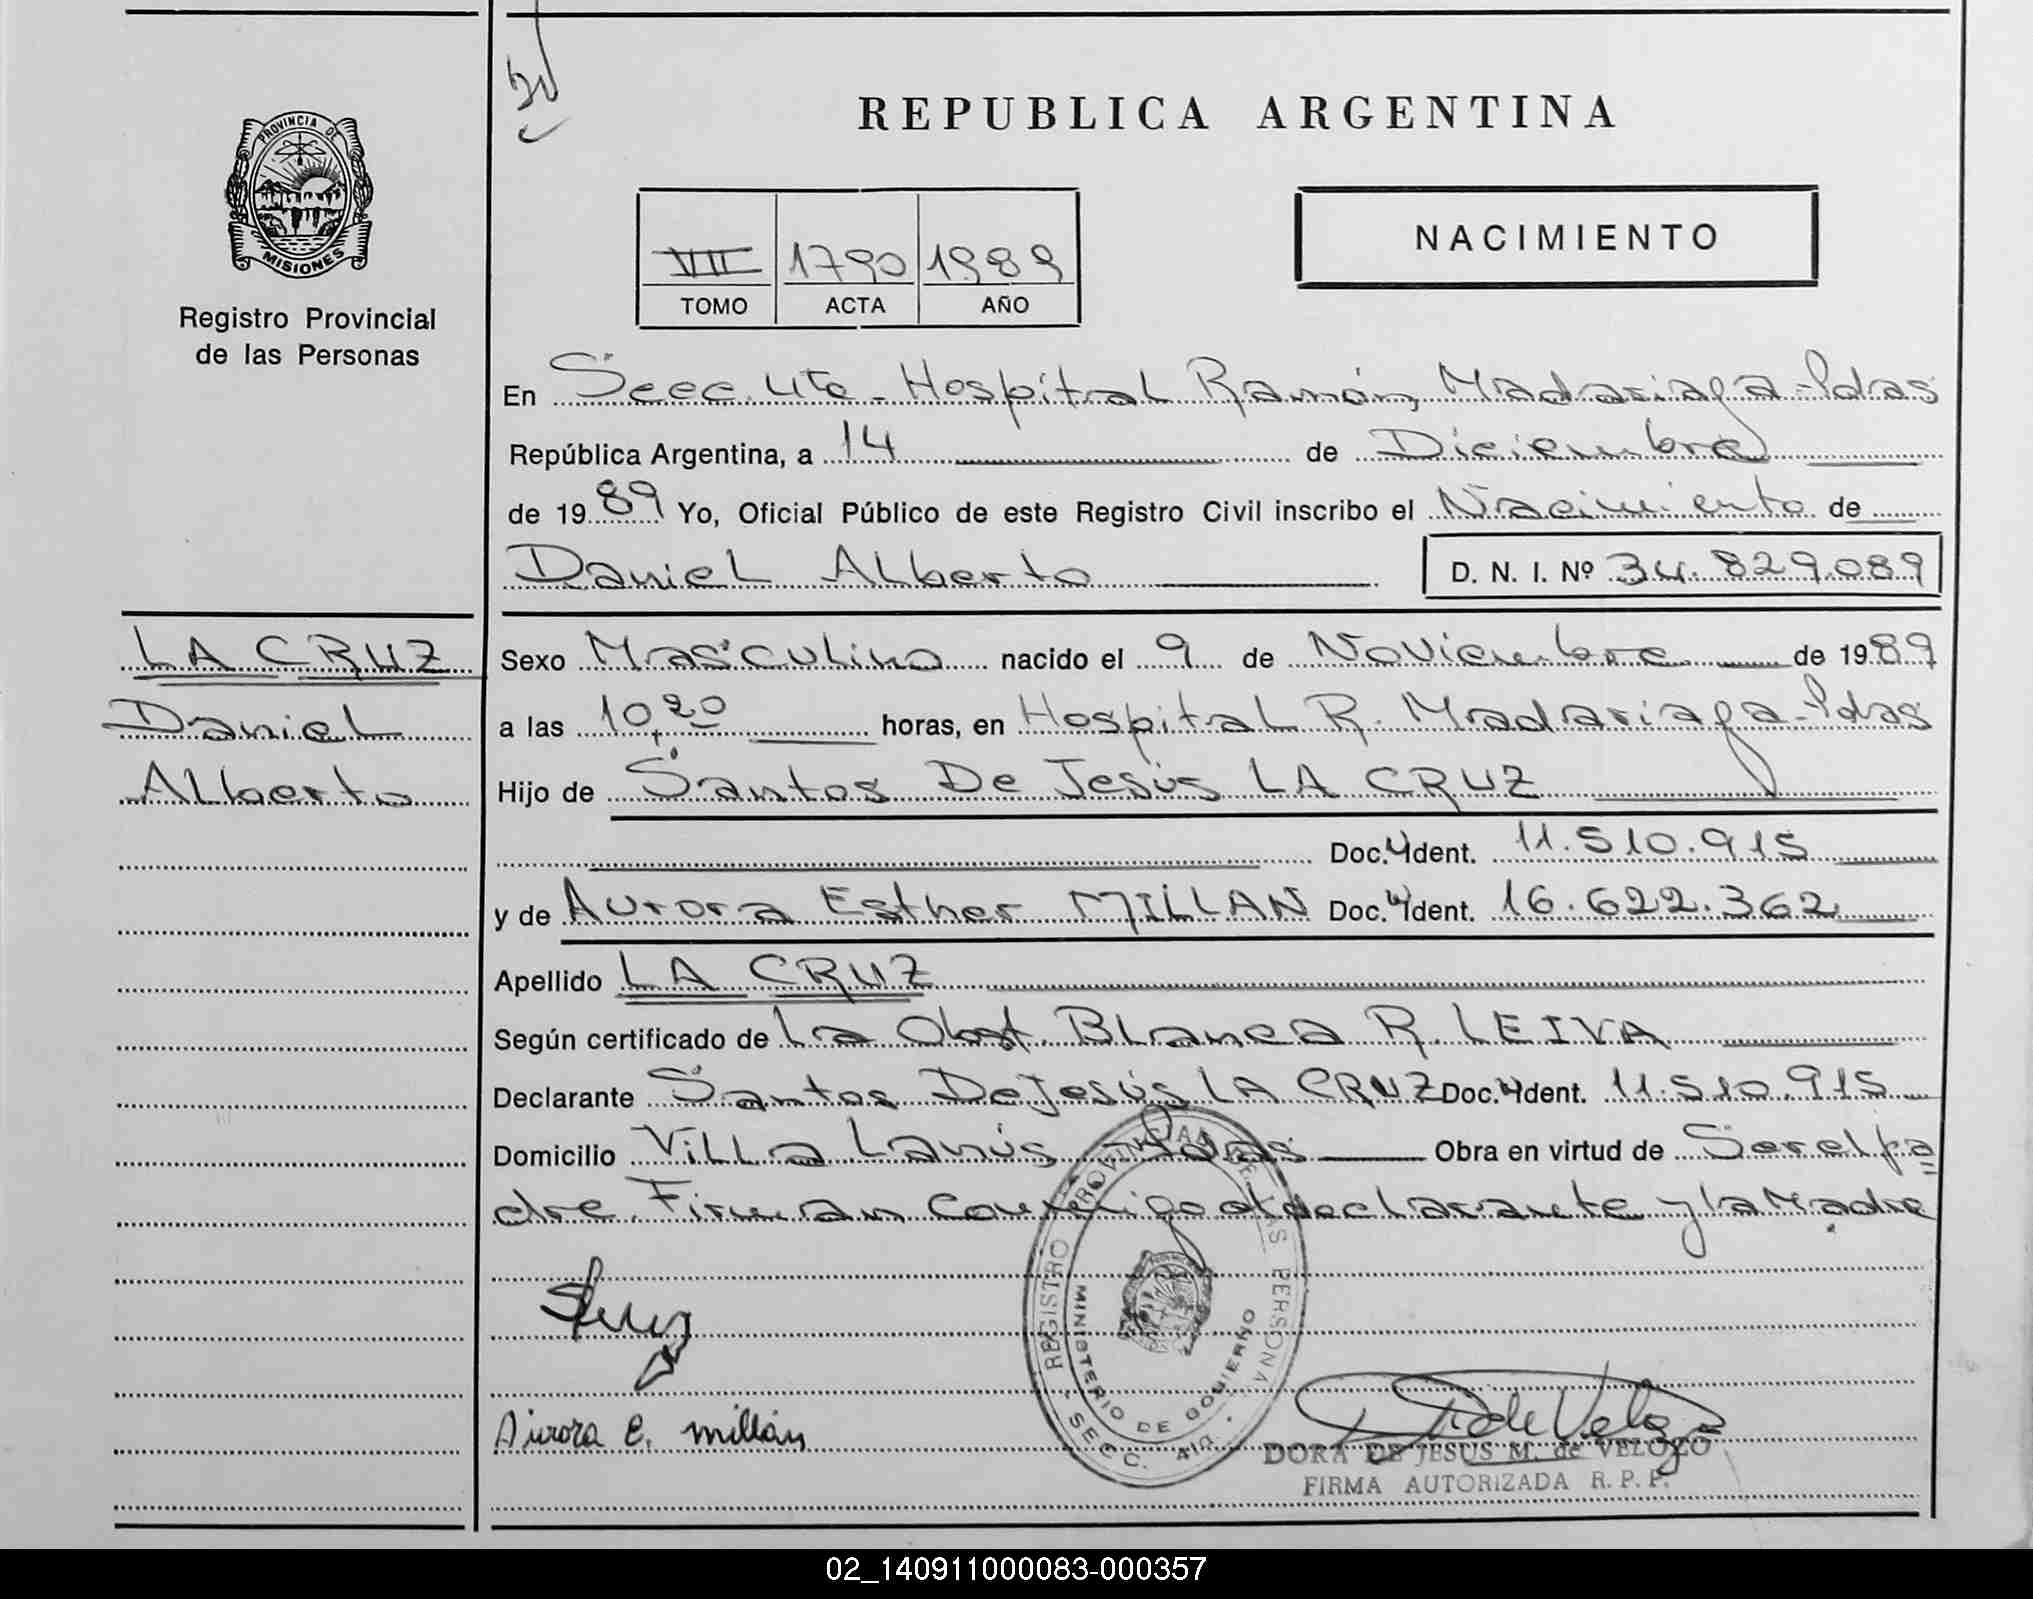 REPUBLICA ARGENTINA
PROVINCIA DE
MISIONES
Registro Provincial
de las Personas
VII 1790 1989
TOMO ACTA AÑO
NACIMIENTO
En Secc. 4ta - Hospital Ramón Madariaga - Pdas
República Argentina, a 14 de Diciembre
de 1989 Yo, Oficial Público de este Registro Civil inscribo el Nacimiento de
Daniel Alberto D. N. I. Nº 34.829.089
LA CRUZ
Daniel
Alberto
Sexo Masculino nacido el 9 de Noviembre de 1989
a las 10,20 horas, en Hospital R. Madariaga - Pdas
Hijo de Santos De Jesús LA CRUZ
Doc. Ident. 11.510.915
y de Aurora Esther MILLAN Doc. Ident. 16.622.362
Apellido LA CRUZ
Según certificado de La Obst. Blanca R. LEIVA
Declarante Santos De Jesús LA CRUZ Doc. Ident. 11.510.915
Domicilio Villa Lanús - Pdas Obra en virtud de Ser el pa
dre. Firman Conmigo el declarante y la Madre
REGISTRO PROVINCIAL DE LAS PERSONAS
MINISTERIO DE GOBIERNO
SECC. 4ta.
Aurora E. Millán
DORA DE JESUS M. de VELOZO
FIRMA AUTORIZADA R. P. P.
02_140911000083-000357